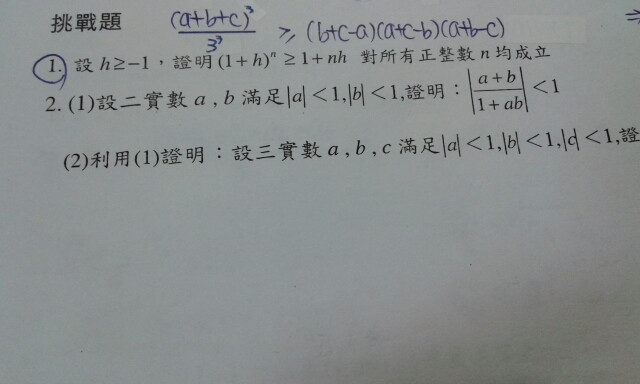 挑戰題 (a+b+c)³/3³ ≥ (b+c-a)(a+c-b)(a+b-c) ⇒
1. 設 h≥-1,證明 (1+h)ⁿ ≥ 1+nh 對所有正整數 n 均成立
2. (1)設二實數 a , b 滿足|a|<1,|b|<1,證明:|(a+b)/(1+ab)|<1
(2)利用(1)證明:設三實數 a , b , c 滿足|a|<1,|b|<1,|c|<1,證